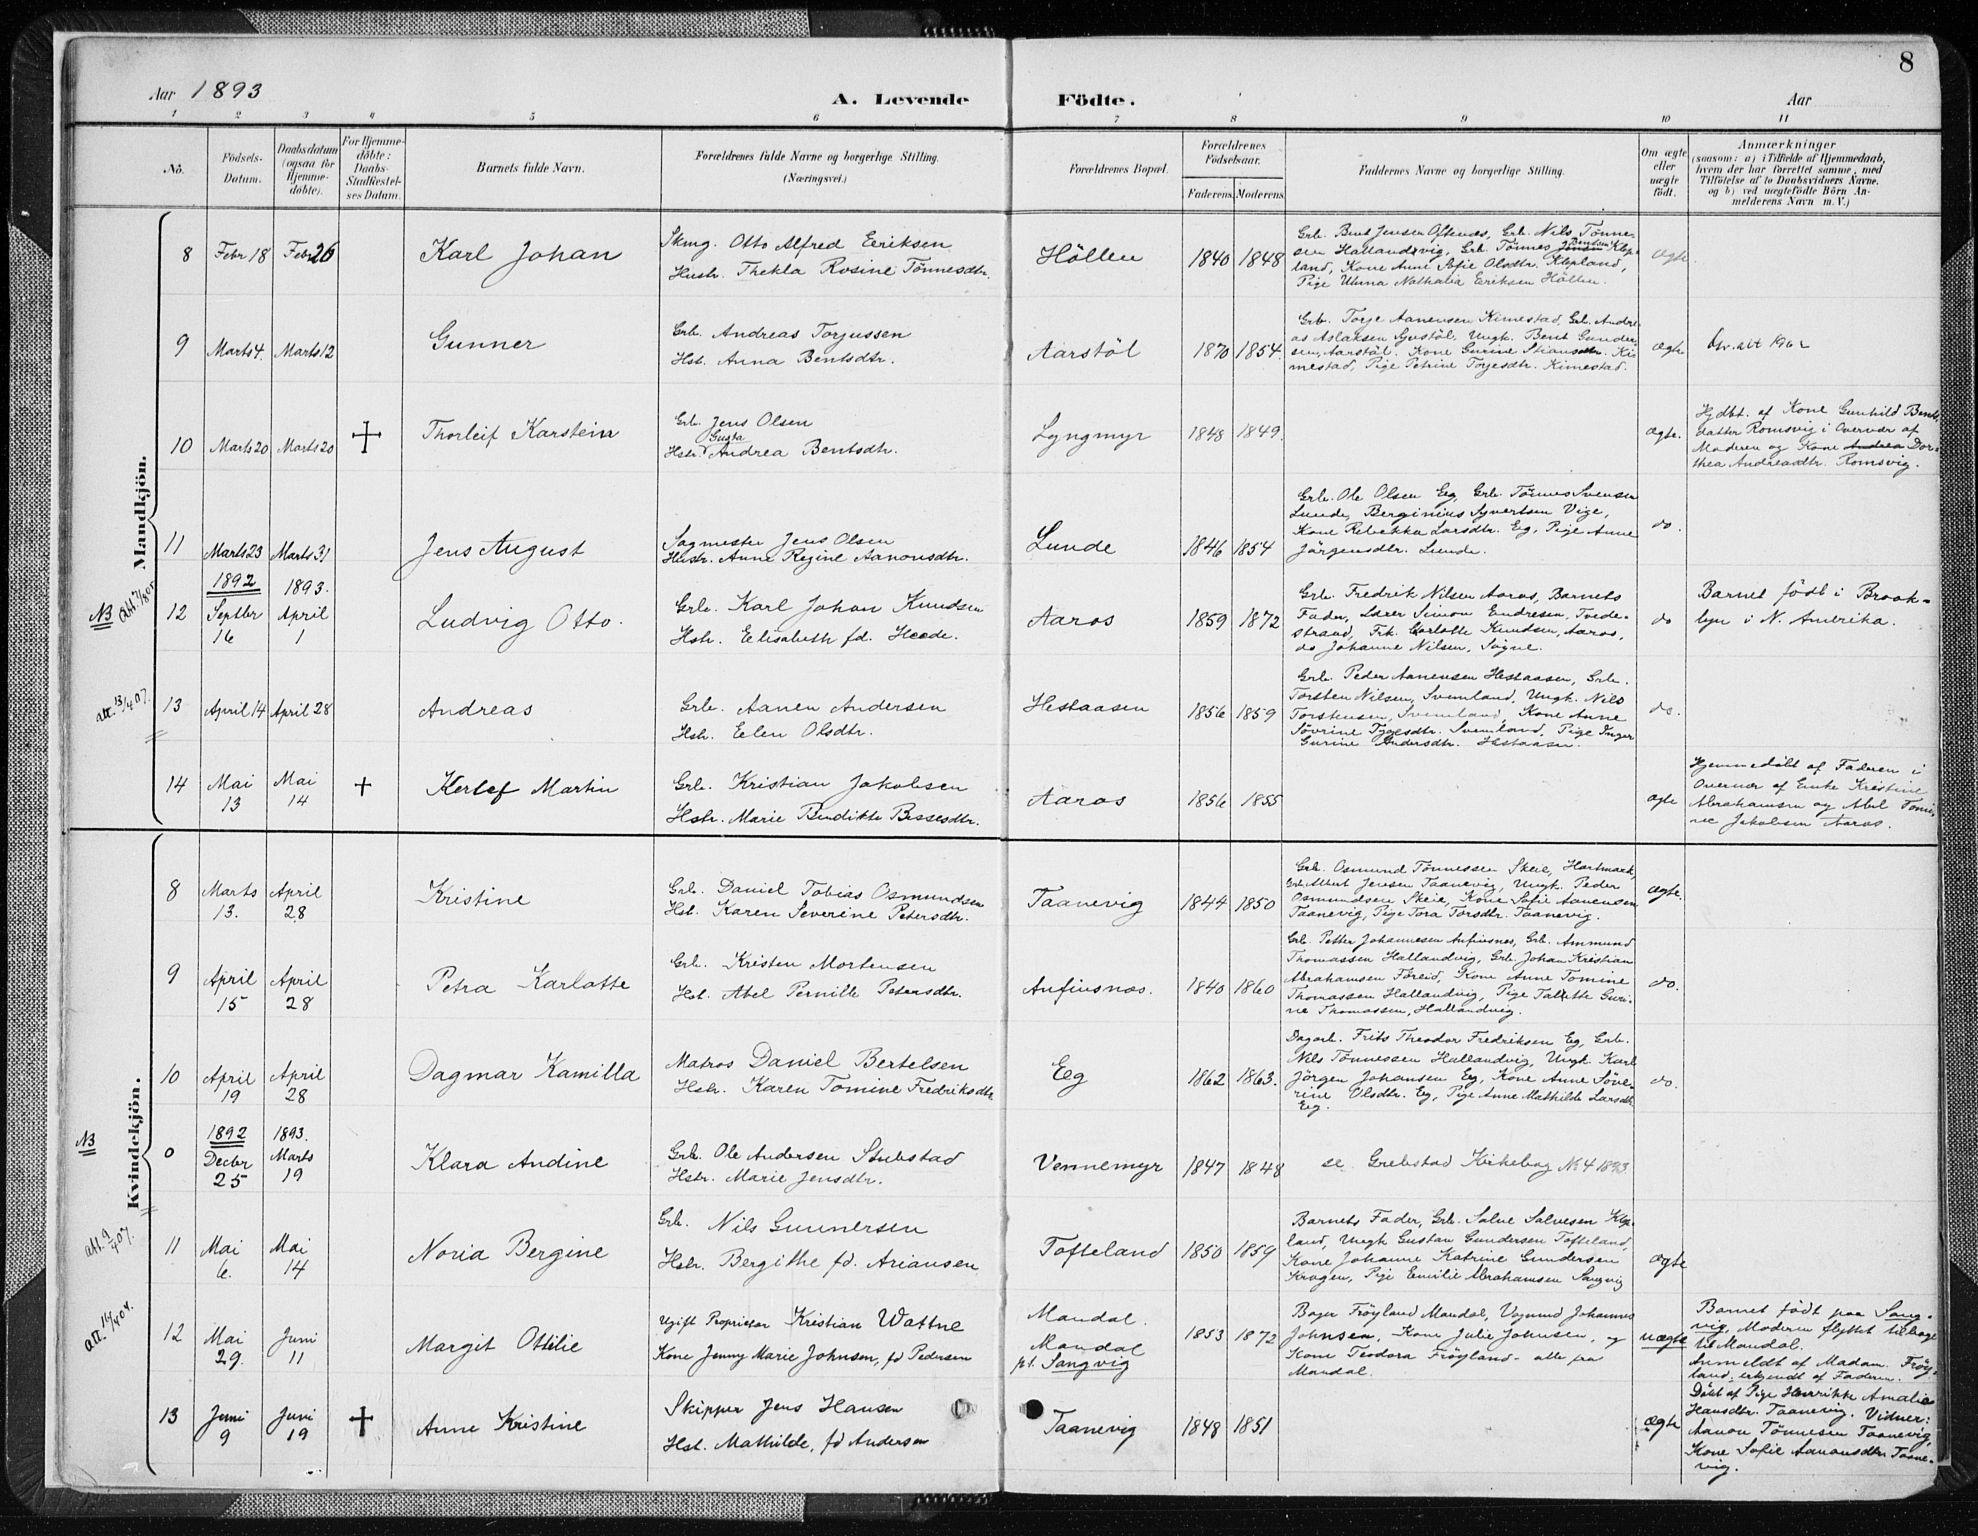 8
Aar 1893
A. Levende Födte.
Aar
1 2 3 4 5 6 7 8 9 10 11
No.
Födsels-Datum.
Daabsdatum (ogsaa for Hjemme-döbte).
For Hjemme-döbte: Daabs-Stadfæstel-ses Datum.
Barnets fulde Navn.
Forældrenes fulde Navne og borgerlige Stilling.
(Næringsvei.)
Forældrenes Bopæl.
Forældrenes Födselsaar.
Faderens. Moderens.
Faddernes Navne og borgerlige Stilling.
Om ægte eller uægte födt.
Anmærkninger
(saasom: a) i Tilfælde af Hjemmedaab,
hvem der har forrettet samme, med
Tilföielse af to Daabsvidners Navne,
og b) ved uægtefödte Börn An-
melderens Navn m. V.)
Mandkjön.
8 Febr 18 Febr 26 Karl Johan
Skmg. Otto Alfred Eeriksen
Hustr. Thekla Rosine Tönnesdtr.
Höllen 1840 1848
Grb. Bent Jensen Oftenæs, Grb. Nils Tönne-
sen Hallandsvig, Grb. Tönnes Jensen Bentsen Klep-
land, Kone Anne Sofie Olsdtr. Klepland,
Pige Unna Nathalia Eriksen Höllen.
Ægte
9 Marts 4. Marts 12 Gunner
Grb. Andreas Torgussen
Hst. Anna Bentsdtr.
Aarstöl 1870 1854.
Grb. Torje Aanensen Kimestad, Grb. Andre-
as Aslaksen Gustöl, Ungk. Bent Gunder-
sen, Aarstöl. Kone Gurine Stiansdtr. Ki-
mestad, Pige Petrine Torjesdtr. Kimestad.
ægte
10 Marts 20 Marts 20 Thorleif Karstein
Grb. Jens Olsen
Gusta
Hstr. Andrea Bentsdtr.
Lyngmyr 1848 1849. ægte.
Hjdbt. af Kone Gunhild Bents-
datter Romsvig i Overvær af
Moderen og Kone Andrea Dor-
thea Andreasdtr. Romsvig.
11 Marts 23 Marts 31 Jens August
Sagmester Jens Olsen
Hustr. Anne Regine Aanonsdtr.
Lunde 1846 1854
Grb. Ole Olsen Eeg, Grb. Tönnes Svensen
Lunde, Berginius Syvertsen Vige,
Kone Rebekka Larsdtr. Eg, Pige Anne
Jörgensdtr. Lunde.
do.
NB
12 1892 Septbr 16 1893. April 1 Ludvig Otto.
Grb. Karl Johan Knudsen
Hstr. Elisabeth fd. Heode.
Aaros 1859 1872
Grb. Fredrik Nilsen Aaros, Barnets
Fader, Lærer Simon Endresen, Tvede-
strand, Frk. Carlotte Knudsen, Aaros,
do Johanne Nilsen, Sögne.
do
Barnet födt i Brook-
lyn i N. Amerika.
att. 13/4 07.
13 April 14 April 28 Andreas
Grb. Aanen Andersen
Hstr. Elen Olsdtr.
Hestaasen 1856 1859
Grb. Peder Aanensen Hestaasen, Grb.
Torsten Nilsen, Svenland, Ungk. Nils
Torstensen, Svenland, Kone Anne
Sövrine Tygesdtr. Svenland, Pige Inger
Gurine Andersdtr. Hestaasen.
do.
14 Mai 13 Mai 14 Kerlof Martin
Grb. Kristian Jakobsen
Hstr. Marie Bendikte Bessesdtr.
Aaros 1856 1855 ægte
Hjemmedöbt af Faderen i
Overvær af Enke Kristine
Abrahamsen og Abel Tomi-
ne Jakobsen Aaros.
Kvindekjön.
8 Marts 13. April 28 Kristine
Grb. Daniel Tobias Osmundsen
Hst. Karen Severine Petersdtr.
Taanevig 1844 1850
Grb. Osmund Tönnessen Skeie, Hartmark,
Grb. Albert Jensen Taanevig, Ungk. Peder
Osmundsen Skeie, Kone Sofie Aanensen
Taanevig, Pige Tora Torsdtr. Taanevig.
ægte.
9 April 15 April 28 Petra Karlotte
Grb. Kristen Mortensen
Hst. Abel Pernille Petersdtr.
Anfinsnes. 1840 1860
Grb. Petter Johannesen Anfinsnes, Grb. Ammund
Thomassen Hallandvig, Grb. Johan Kristian
Abrahamsen Föreid, Kone Anne Tomine
Thomassen Hallandvig, Pige Tallette Guri-
ne Thomassen, Hallandvig.
do.
10 April 19 April 28 Dagmar Kamilla
Matros Daniel Bertelsen
Hstr. Karen Tomine Fredriksdtr
Eeg 1862 1863.
Dagarb. Frits Theodor Fredriksen Eg, Grb.
Nils Tönnessen Hallandvig, Ungk. Karl
Jörgen Johansen Eg, Kone Anne Söve-
rine Olsdtr. Eg, Pige Anne Mathilde Larsdtr.
Eeg.
do.
NB
0 1892 Decbr 25 1893. Marts 19 Klara Andine
Grb. Ole Andersen Stubstad
Hstr. Marie Jensdtr.
Vennemyr 1847 1848
se Grebstad Kirkebog No 4 1893
att. 9/4 07.
11 Mai 6. Mai 14 Noria Bergine
Grb. Nils Gunnersen
Hstr. Bergithe fd. Ariansen
Tofteland 1850 1859
Barnets Fader, Grb. Salve Salvesen Klep-
land, Ungk Gustav Gundersen Tofteland,
Kone Johanne Katrine Gundersen
Kragen, Pige Emilie Abrahamsen Sangvig
ægte
12 Mai 29. Juni 11 Margit Ottilie
Ugift Proprietær Kristian Wattne
Kone Jenny Marie Johnsen, fd Pedersen
Mandal.
Mandal
pt. Sangvig
1853 1872
Bager Fröyland Mandal, Vognmd Johannes
Johnsen, Kone Julie Johnsen, og
Kone Teodora Fröyland - alle fra
Mandal.
uægte
Barnet födt paa Sang-
vig, Moderen flyttet tilbage
til Mandal.
Anmeldt af Madam. Fröy-
land, erkjendt af Faderen.
13 Juni 9 Juni 19 Anne Kristine
Skipper Jens Hansen
Hst. Mathilde, fd Andersen
Taanevig 1848 1851 Ægte
Döbt af Pige Henrikke Amalie
Hansdtr. Taanevig. Vidner:
Aanon Tönnesen Taanevig,
Kone Sofie Aanonsdtr. Taane-
vig.